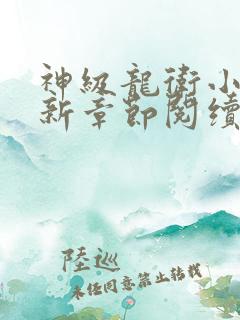 神級龍衛小
新章節閱續
陸巡
未经同意禁止转载